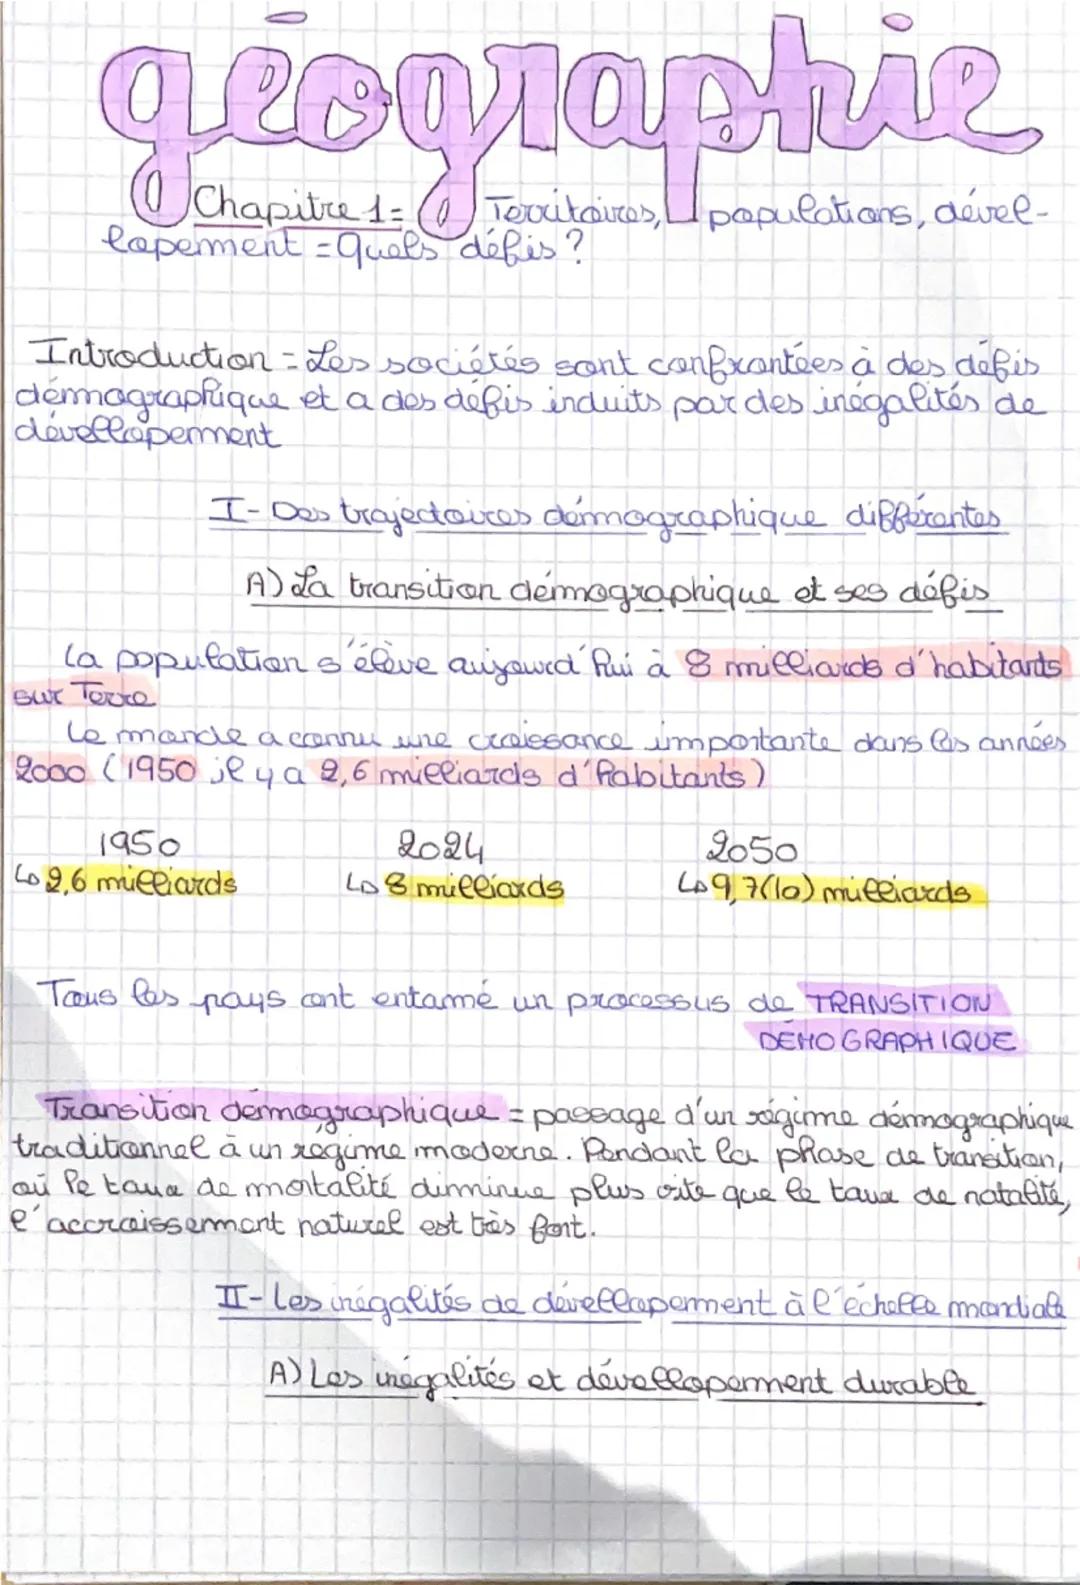 géographie
Chapitre 1= Territoires, populations, dével-
lopement = Quels défis ?
Introduction = Les sociétés sont confrontées à des défis
démographique et a des défis induits par des inégalités de
dévellopement
I- Des trajectoires démographique différentes
A) La transition démographique et ses défis
La population s'élève aujourd'hui à 8 milliards d'habitants
sur Terre
Le monde a connu une croissance importante dans les années
2000 (1950 il y a 2,6 milliards d'habitants)
1950 2024 2050
↳ 2,6 milliards ↳ 8 milliards ↳ 9,7(10) milliards
Tous les pays ont entamé un processus de TRANSITION
DÉMOGRAPHIQUE
Transition démographique = passage d'un régime démographique
traditionnel à un régime moderne. Pendant la phase de transition,
où le taux de mortalité diminue plus vite que le taux de natalité,
l'accroissement naturel est très fort.
II- Les inégalités de dévellopement à l'échelle mondiale
A) Les inégalités et dévellopement durable